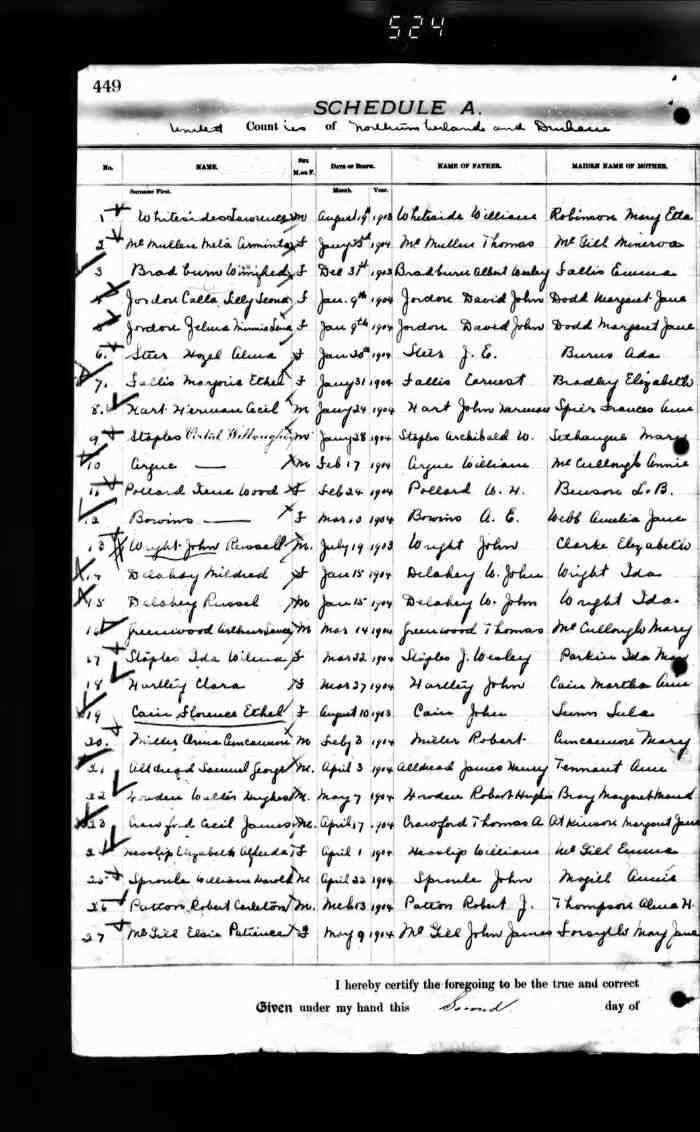 524
449
SCHEDULE A.
United Counties of Northumberland and Durham
No. NAME. SEX M. or F. DATE OF BIRTH. NAME OF FATHER. MAIDEN NAME OF MOTHER.
Surname First. Month. Year.
1 Whitesides Lawrence M August 19th 1903 Whiteside William Robinson Mary Etta
2 McMullen Arminta F Jany 1904 McMullen Thomas McGill Minerva
3 Bradburn Winifred F Dec 31st 1903 Bradburn Albert Wesley Fallis Emma
4 Jordon Calla Lilly Leona F Jan. 9th 1904 Jordon David John Dodd Margaret Jane
Jordon Zelma F Jan 9th 1904 Jordon David John Dodd Margaret Jane
6. Stees Hazel Alma F Jan 1904 Stees J. E. Burns Ada
7. Fallis Marjorie Ethel F Jany 31 1904 Fallis Earnest Bradley Elizabeth
8. Hart Herman Cecil M Jany 24 1904 Hart John Spier Frances Ann
9 Staples Willoughby M Jany 28 1904 Staples Archibald W. Mary
10 Argue — M Feb 17 1904 Argue William McCullough Annie
11 Pollard Irene Wood F Feb 24 1904 Pollard W. H. Benson L. B.
12 Bowins — F Mar 1904 Bowins A. E. Webb Amelia Jane
13 Wright John Russell M. July 19 1903 Wright John Clarke Elizabeth
14 Delahey Mildred F Jan 15 1904 Delahey W. John Wright Ida
15 Delahey Russel M Jan 15 1904 Delahey W. John Wright Ida
16 Greenwood Arthur M Mar 14 1904 Greenwood Thomas McCullough Mary
17 Staples Ida Wilma F Mar 22 1904 Staples J. Wesley Parkin Ida May
18 Hartley Clara F Mar 27 1904 Hartley John Cain Martha Ann
19 Cain Florence Ethel F August 10 1903 Cain John Lula
20. Miller M Feby 3 1904 Miller Robert Mary
21 Alldread Samuel George M. April 3 1904 Alldread James Henry Tennant Ann
22 Howden Walter Hughes M. May 7 1904 Howden Robert Hughes Bray Margaret Maud
23 Crawford Cecil James M. April 17 1904 Crawford Thomas A Atkinson Margaret Jane
2 Heaslip Elizabeth Alfreda F April 1 1904 Heaslip William McGill Emma
25 Sproule William Harold M April 22 1904 Sproule John Magill Annie
26 Patton Robert Carleton M. Mch 13 1904 Patton Robert J. Thompson Alma H.
27 McGill Elsie Patience F May 9 1904 McGill John James Forsythe Mary Jane
I hereby certify the foregoing to be the true and correct
Given under my hand this Second day of